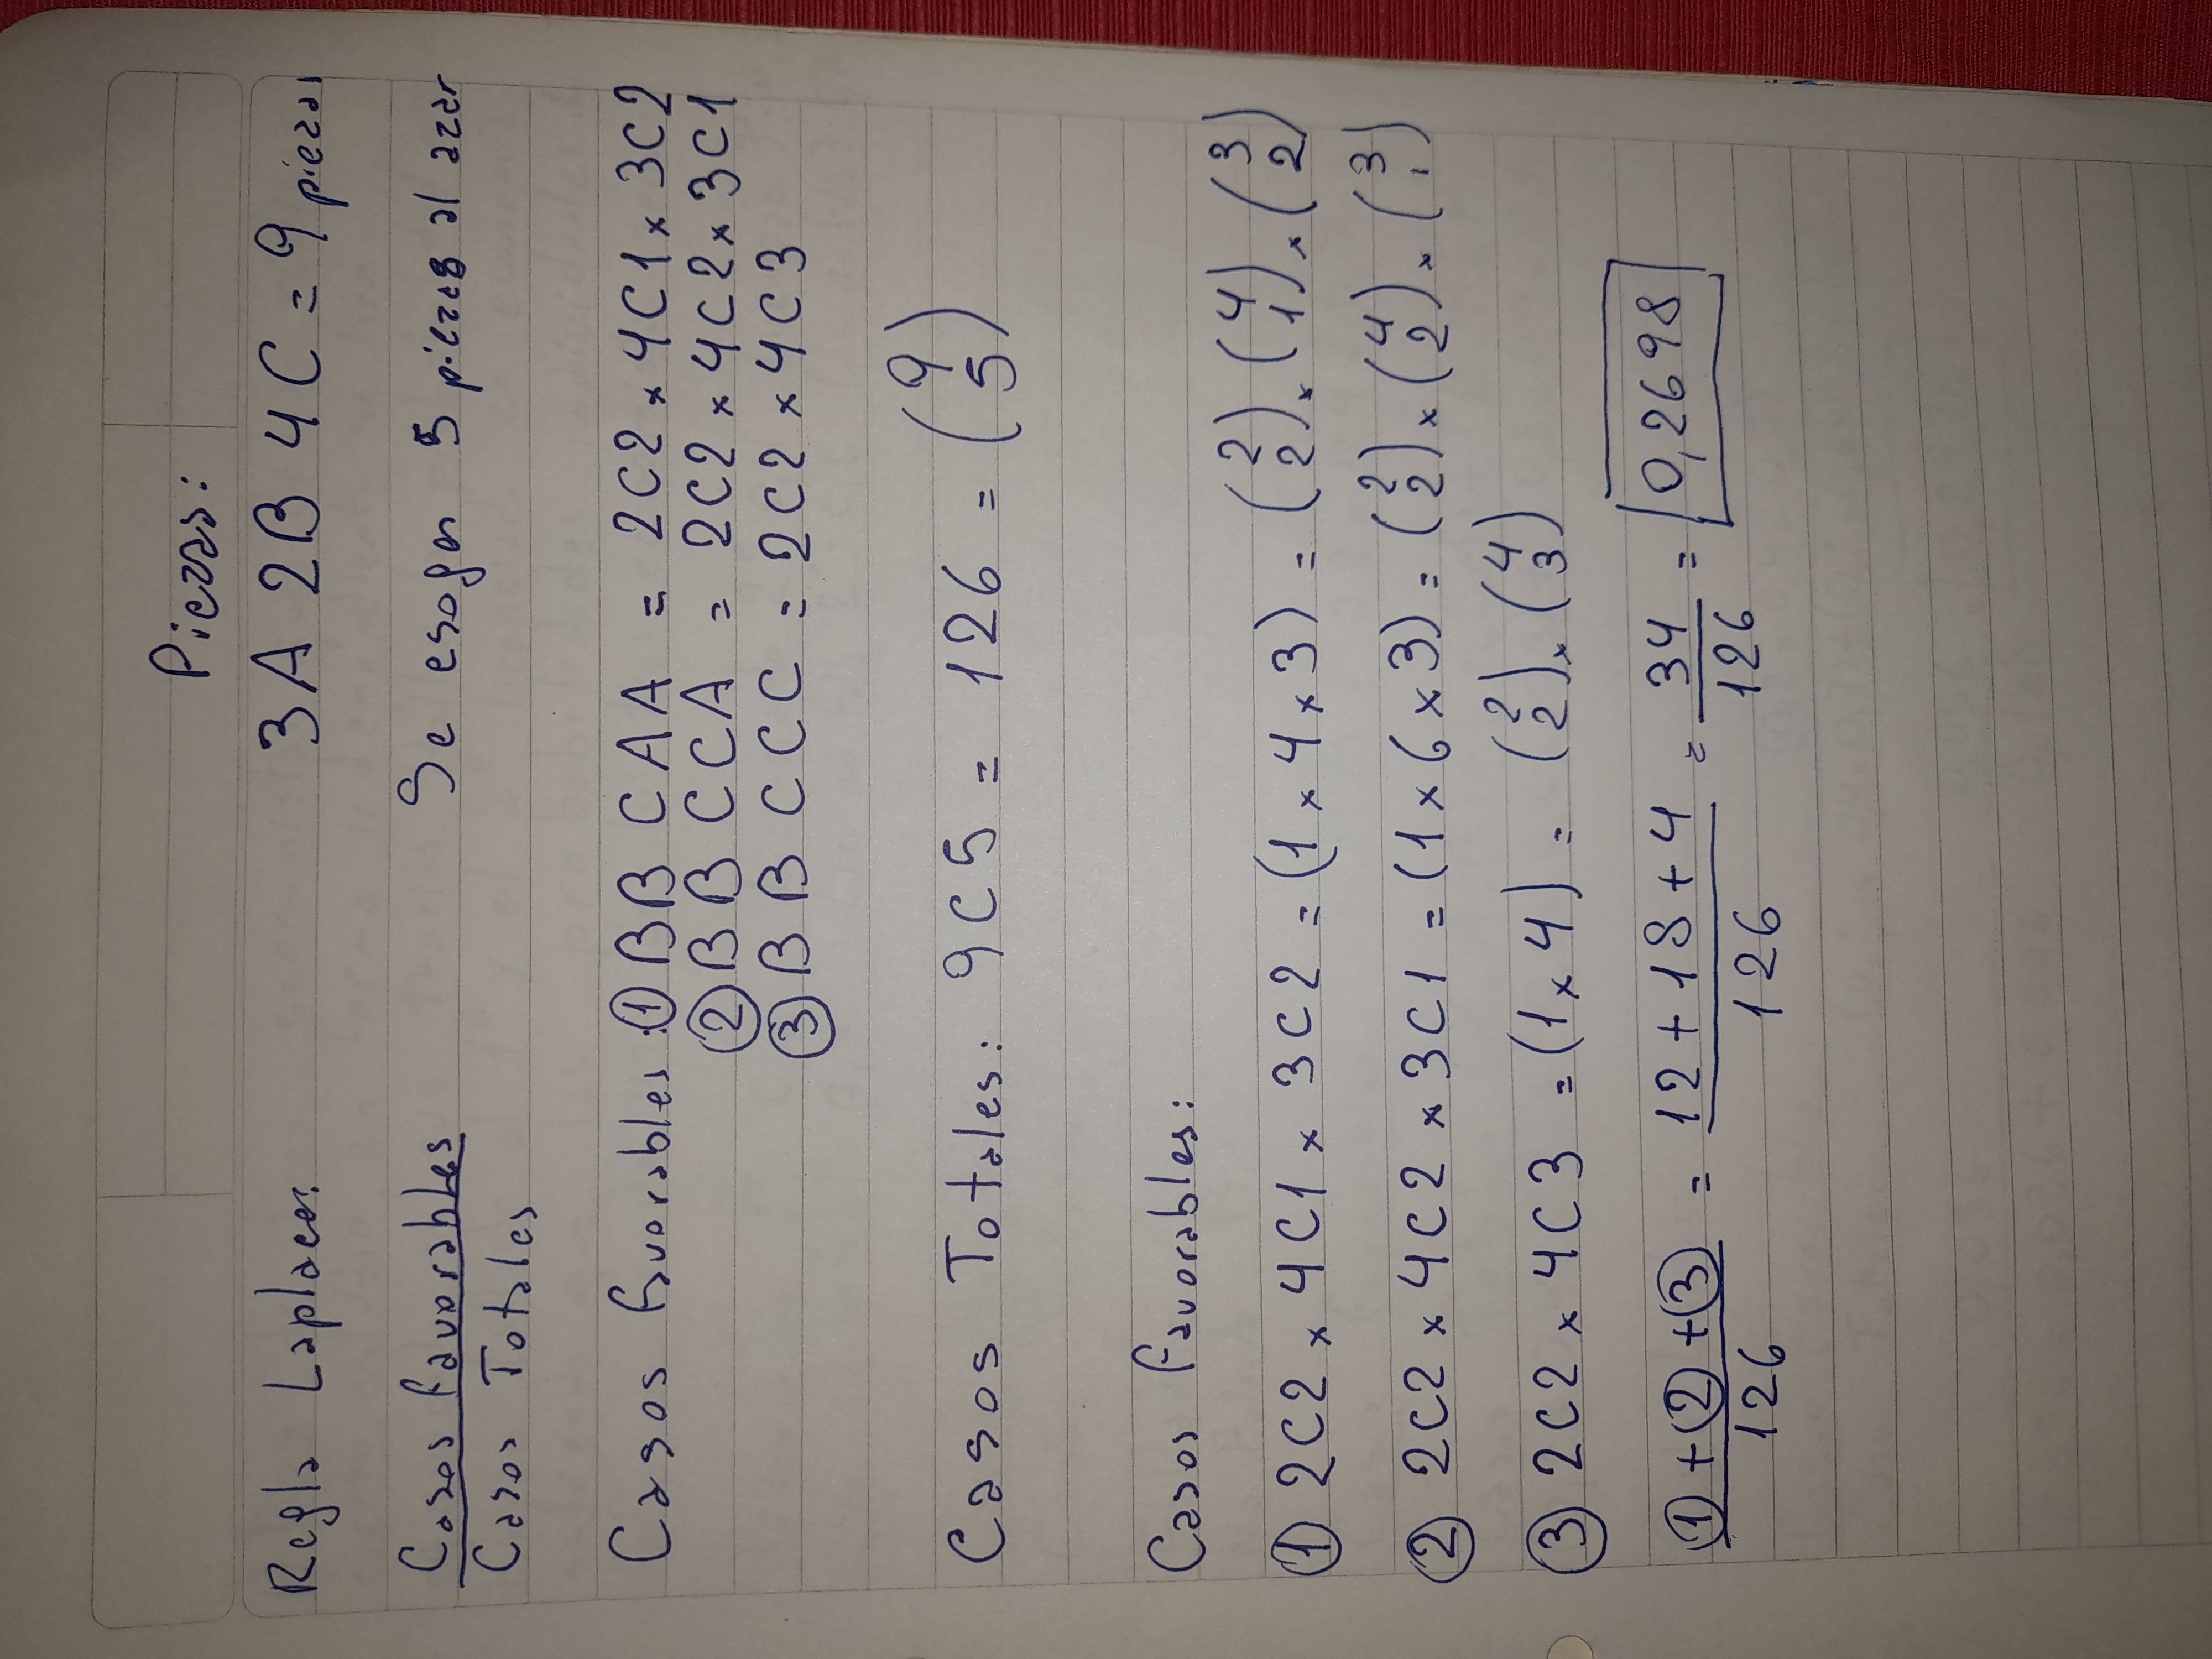 Piezas:
Regla Laplace: 3A 2B 4C = 9 piezas
Casos favorables Se esogen 5 piezas al azar
Casos Totales
Casos favorables: ① BB CAA = 2C2 x 4C1 x 3C2
② BB CCA = 2C2 x 4C2 x 3C1
③ BB CCC = 2C2 x 4C3
Casos Totales: 9C5 = 126 = (9 5)
Casos favorables:
① 2C2 x 4C1 x 3C2 = (1 x 4 x 3) = (2 2) x (4 1) x (3 2)
② 2C2 x 4C2 x 3C1 = (1 x 6 x 3) = (2 2) x (4 2) x (3 1)
③ 2C2 x 4C3 = (1 x 4) = (2 2) x (4 3)
① + ② + ③ = 12 + 18 + 4 = 34 = 0,2698
126 126 126